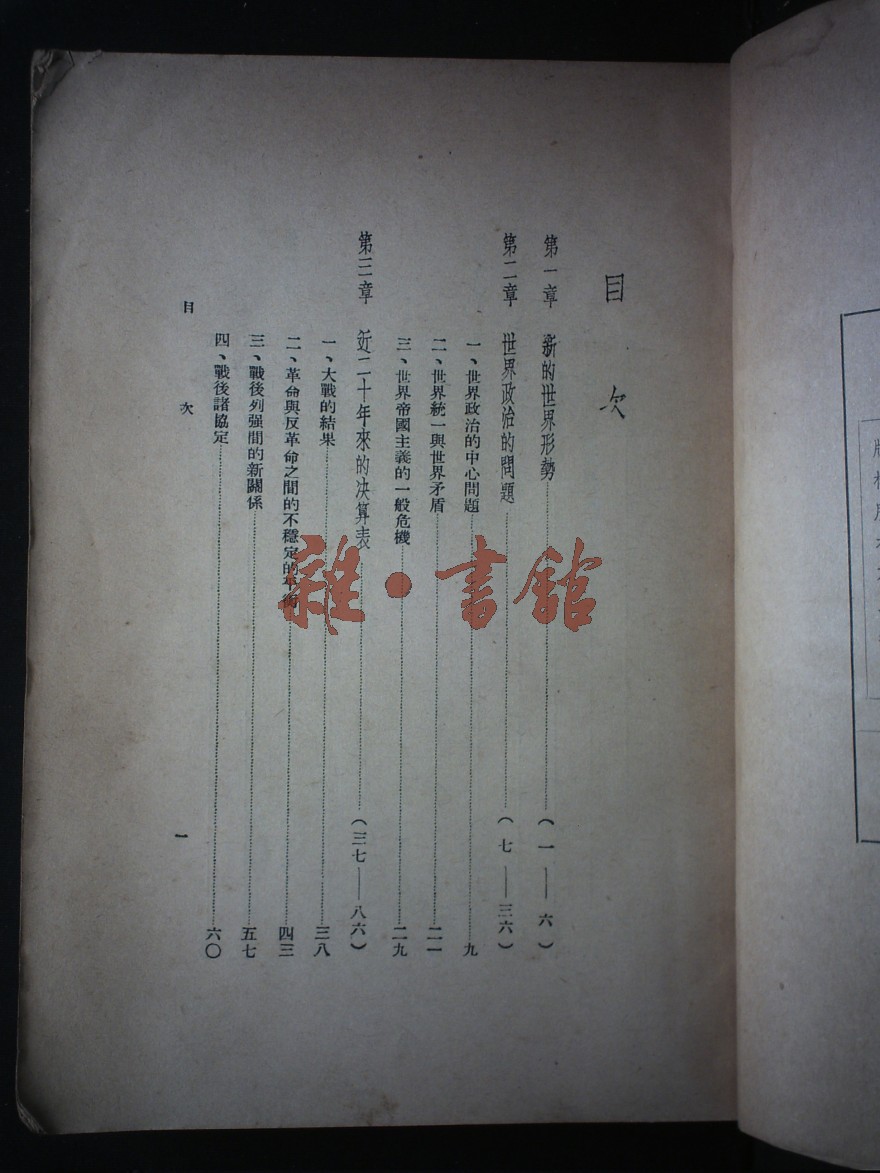 目次
第一章 新的世界形勢……(一——六)
第二章 世界政治的問題……(七——三六)
一、世界政治的中心問題……九
二、世界統一與世界矛盾……二一
三、世界帝國主義的一般危機……二九
第三章 近二十年來的決算表……(三七——八六)
一、大戰的結果……三八
二、革命與反革命之間的不穩定的平衡……四三
三、戰後列强間的新關係……五七
四、戰後諸協定……六〇
目次 一
雜·書館